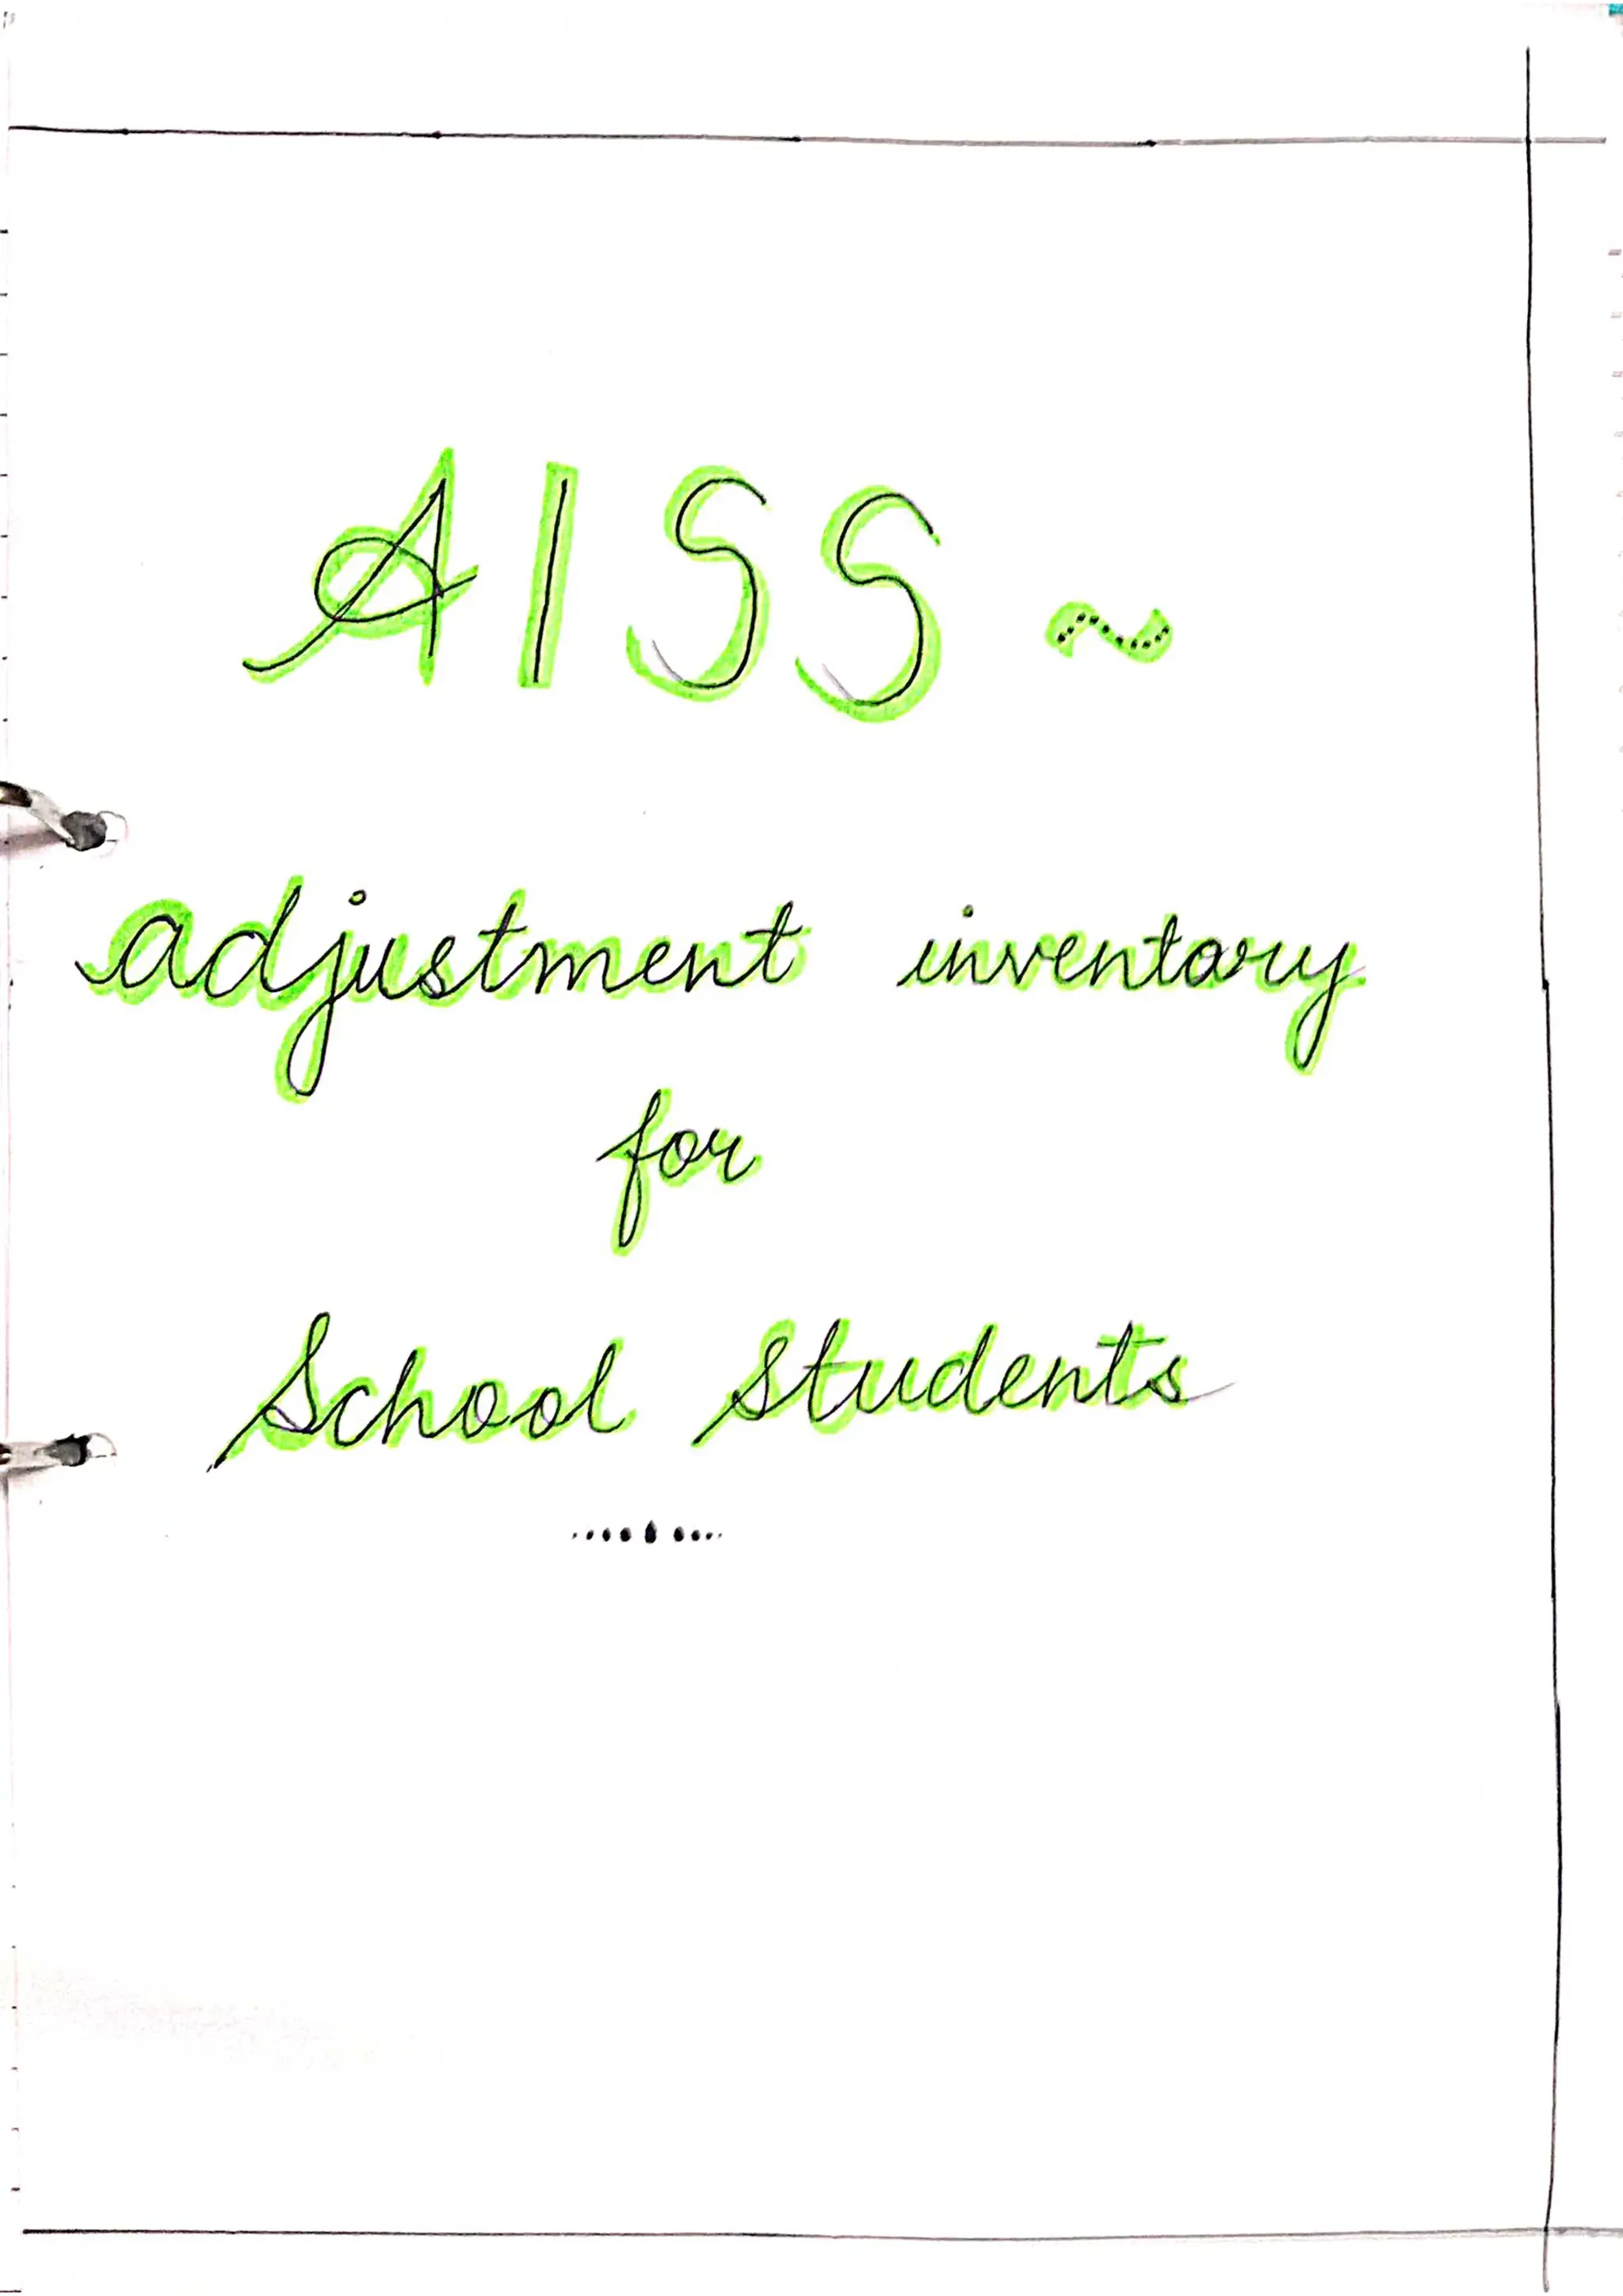 AISS ~
adjustment inventory
for
School Students